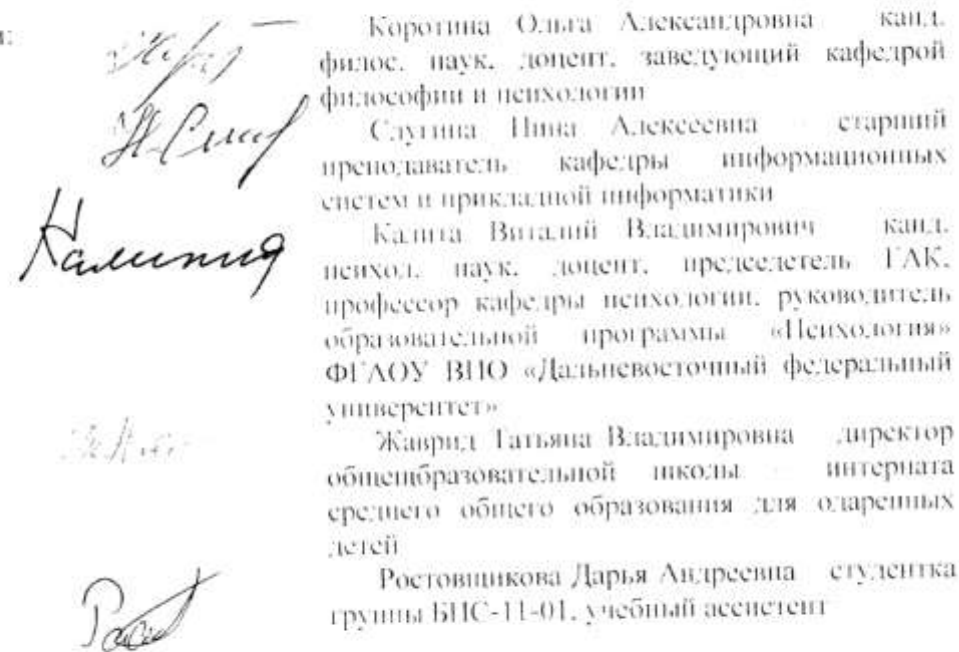 и:
Коротина Ольга Александровна канд.
филос. наук, доцент, заведующий кафедрой
философии и психологии
Слугина Нина Алексеевна – старший
преподаватель кафедры информационных
систем и прикладной информатики
Калита Виталий Владимирович канд.
психол. наук, доцент, председетель ГАК,
профессор кафедры психологии, руководитель
образовательной программы «Психология»
ФГАОУ ВПО «Дальневосточный федеральный
университет»
Жаврид Татьяна Владимировна директор
общещбразовательной школы – интерната
среднего общего образования для одаренных
детей
Ростовщикова Дарья Андреевна студентка
группы БИС-11-01, учебный ассистент